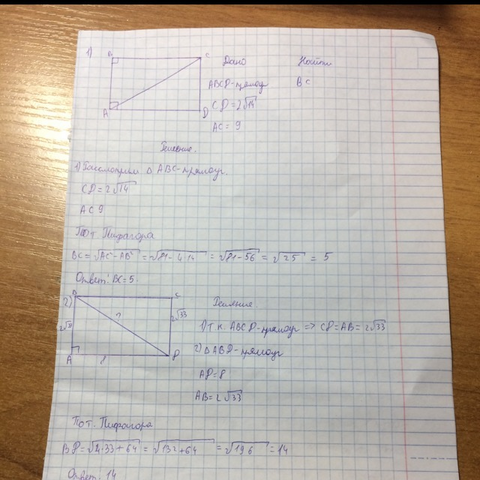 1)
B C
Дано Найти
ABCD-прямоуг. BC
CD=2√14
A D
AC = 9
Решение.
1) Рассмотрим Δ ABC-прямоуг.
CD=2√14
AC 9
По т Пифагора
BC=√AC²-AB² = √81-4·14 = √81-56 = √25 = 5
Ответ: BC=5.
2) B C
Решение
2√33 ? 2√33
1) т.к. ABCD-прямоуг => CD=AB=2√33
2) ΔABD-прямоуг
A 8 D
AD=8
AB=2√33
По т. Пифагора
BD=√4·33+64 = √132+64 = √196 = 14
Ответ: 14